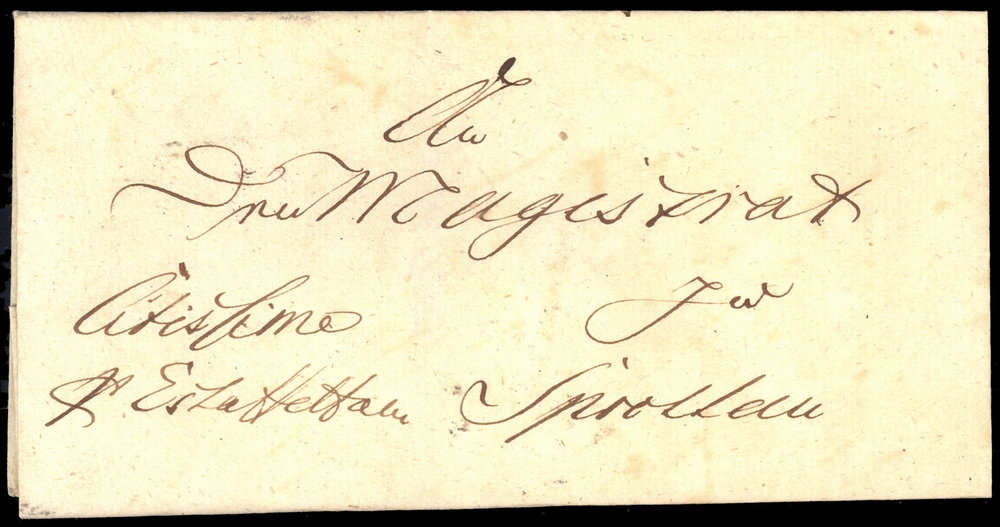 An
Den Magistrat
Citissime
zu
p Estaffettam
Sprottau